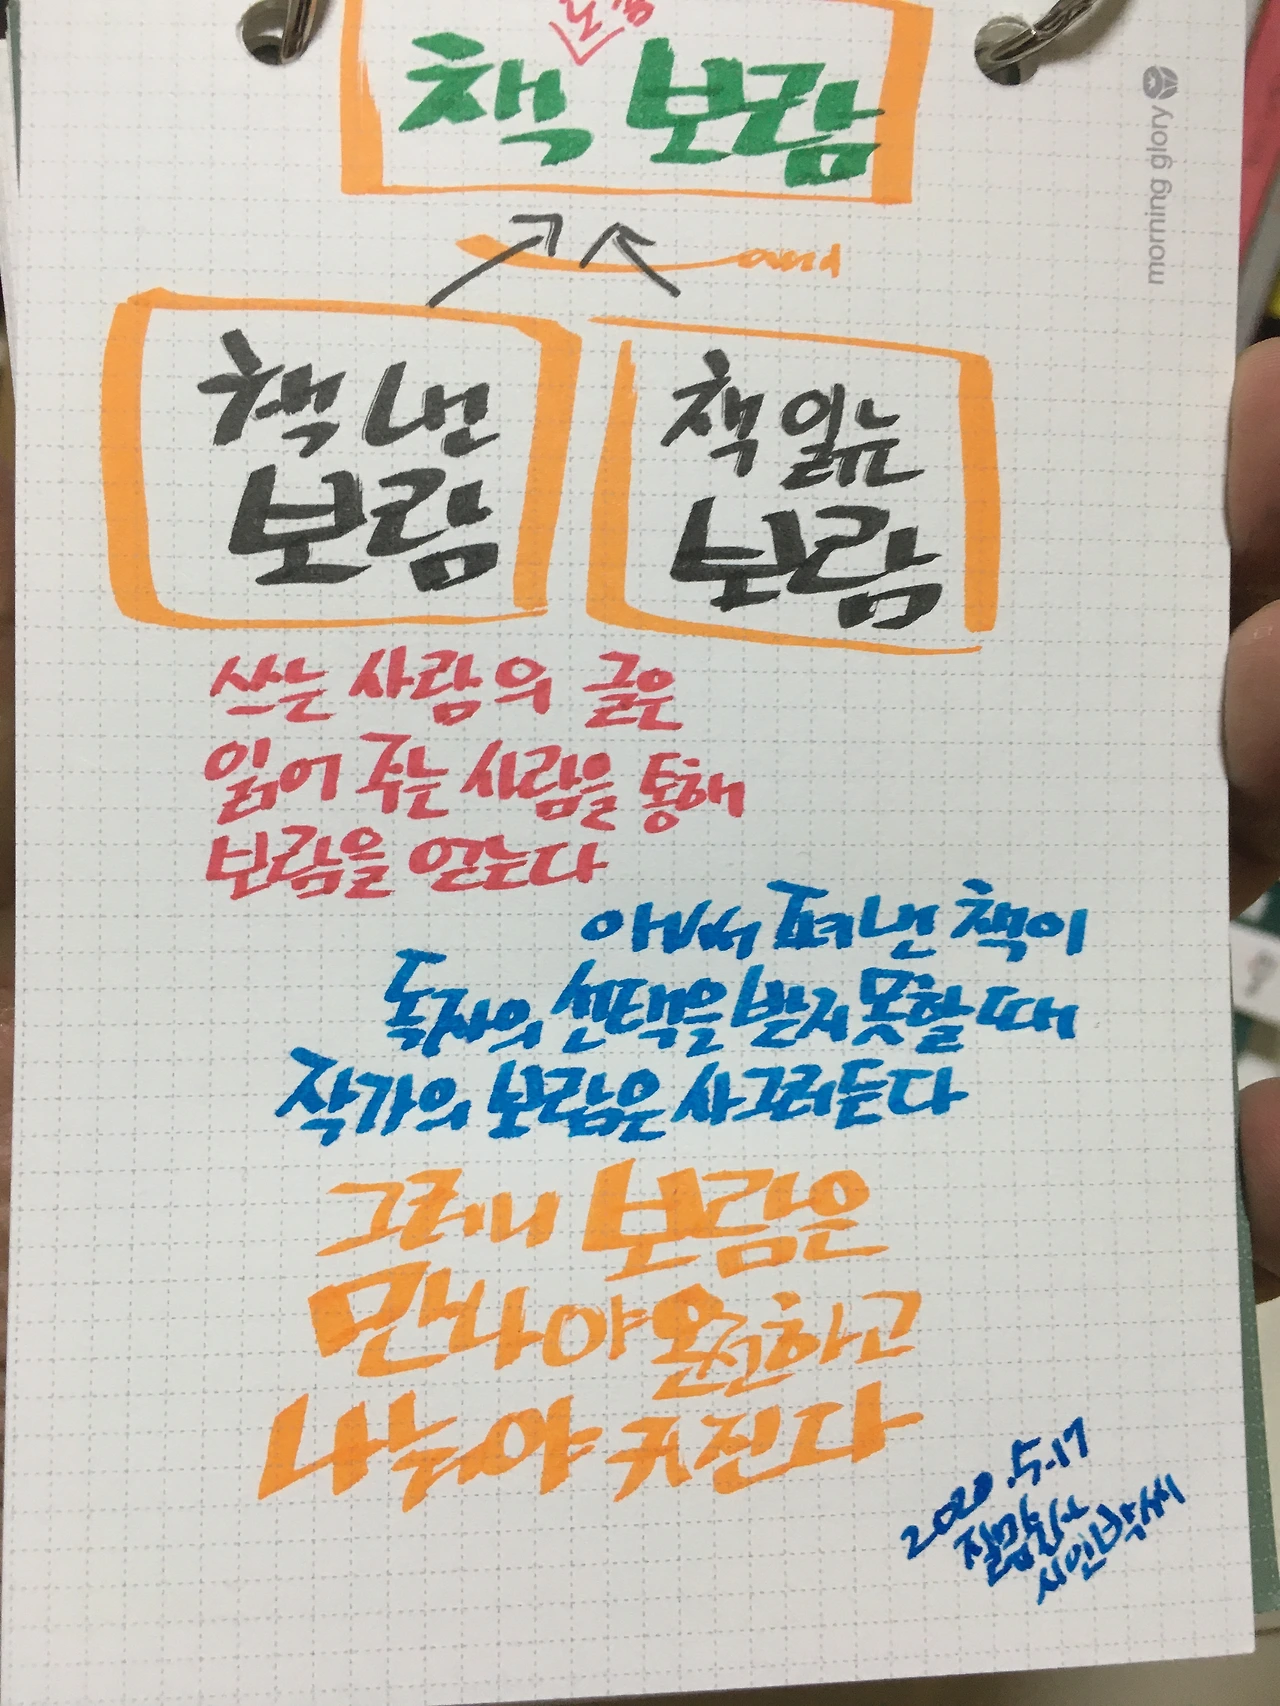 책 보람
morning glory
and
책 낸
보람
책 읽는
보람
쓰는 사람의 글은
읽어 주는 사람을 통해
보람을 얻는다
애써 펴낸 책이
독자의 선택을 받지 못할 때
작가의 보람은 사그러든다
그러니 보람은
만나야 온전하고
나눠야 커진다
2020.5.17
시인박씨